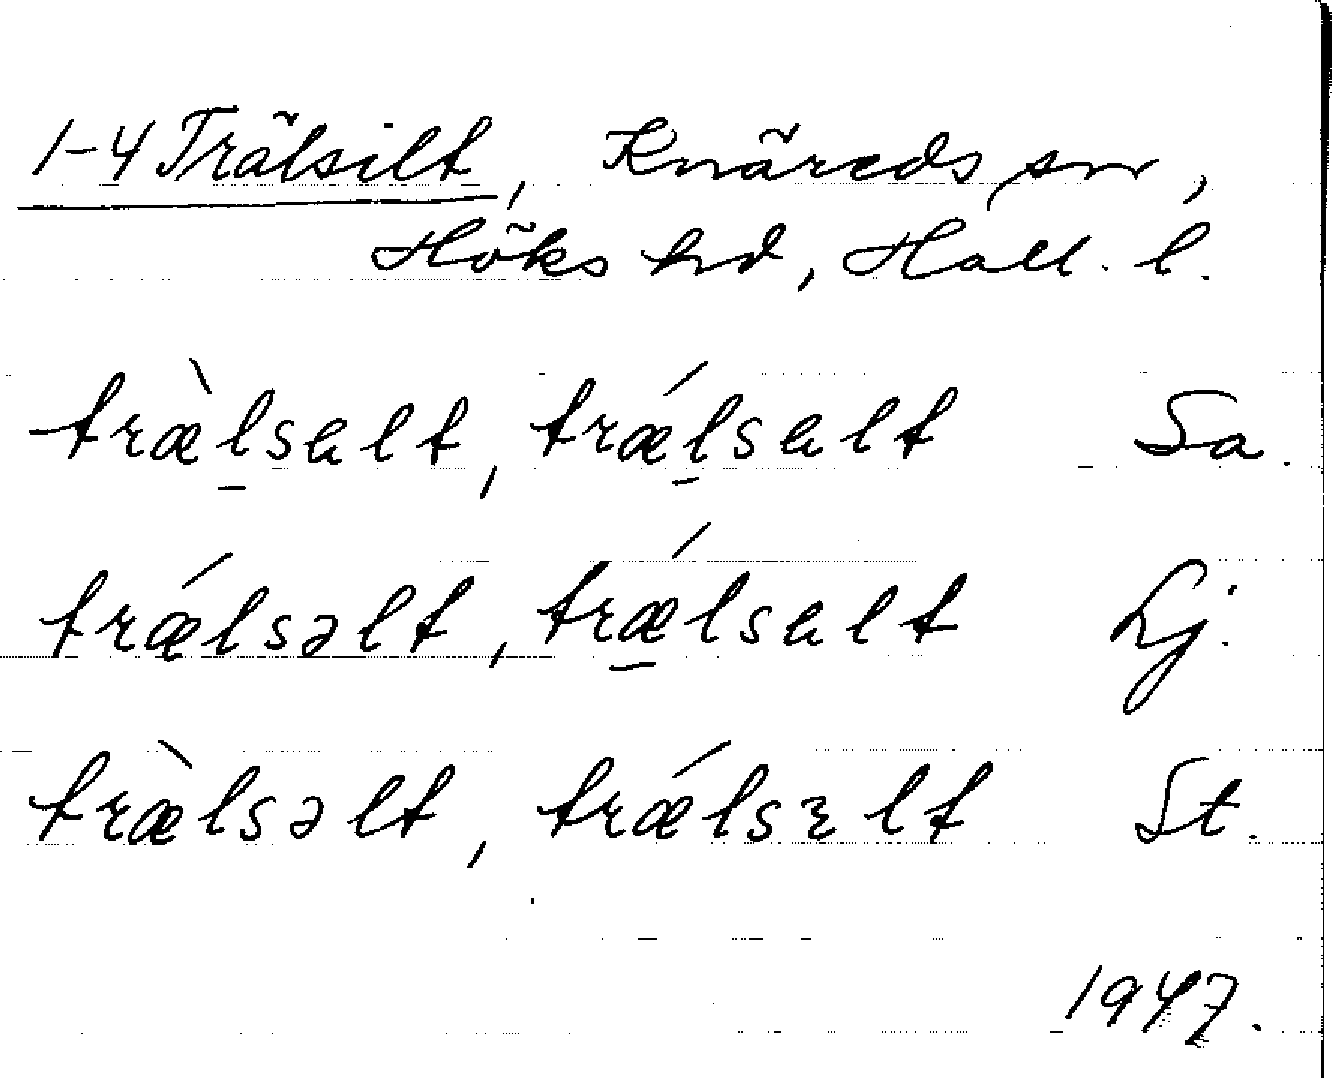 1-4 Trälsilt, Knäreds sn,
Höks hd, Hall. l.
træ̀l̲sɐlt, trǽl̲sɐlt Sa.
trǽlsəlt, trǽ̲lsɐlt Lj.
træ̀lsəlt, trǽlsɛlt St.
1947.